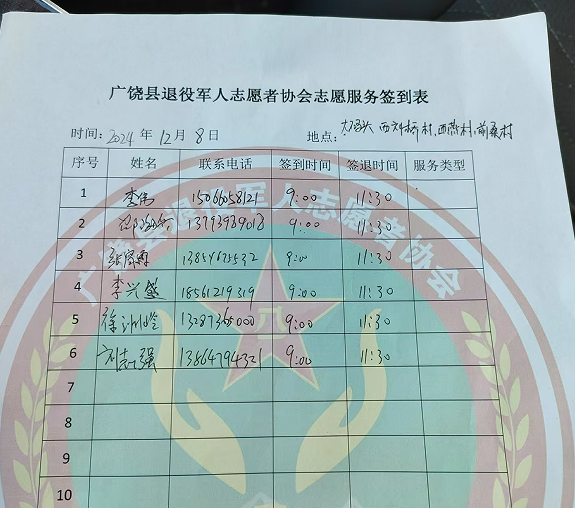 广饶县退役军人志愿者协会志愿服务签到表
时间：2024 年 12 月 8 日 地点： 西刘桥村、西燕村、前桑村
序号 姓名 联系电话 签到时间 签退时间 服务类型
1 李伟 15066058121 9:00 11:30
2 13793989018 9:00 11:30
3 13854675532 9:00 11:30
4 李兴盛 18561219319 9:00 11:30
5 徐 13287366000 9:00 11:30
6 刘志强 13864794321 9:00 11:30
7
8
9
10
广饶县退役军人志愿者协会
八一